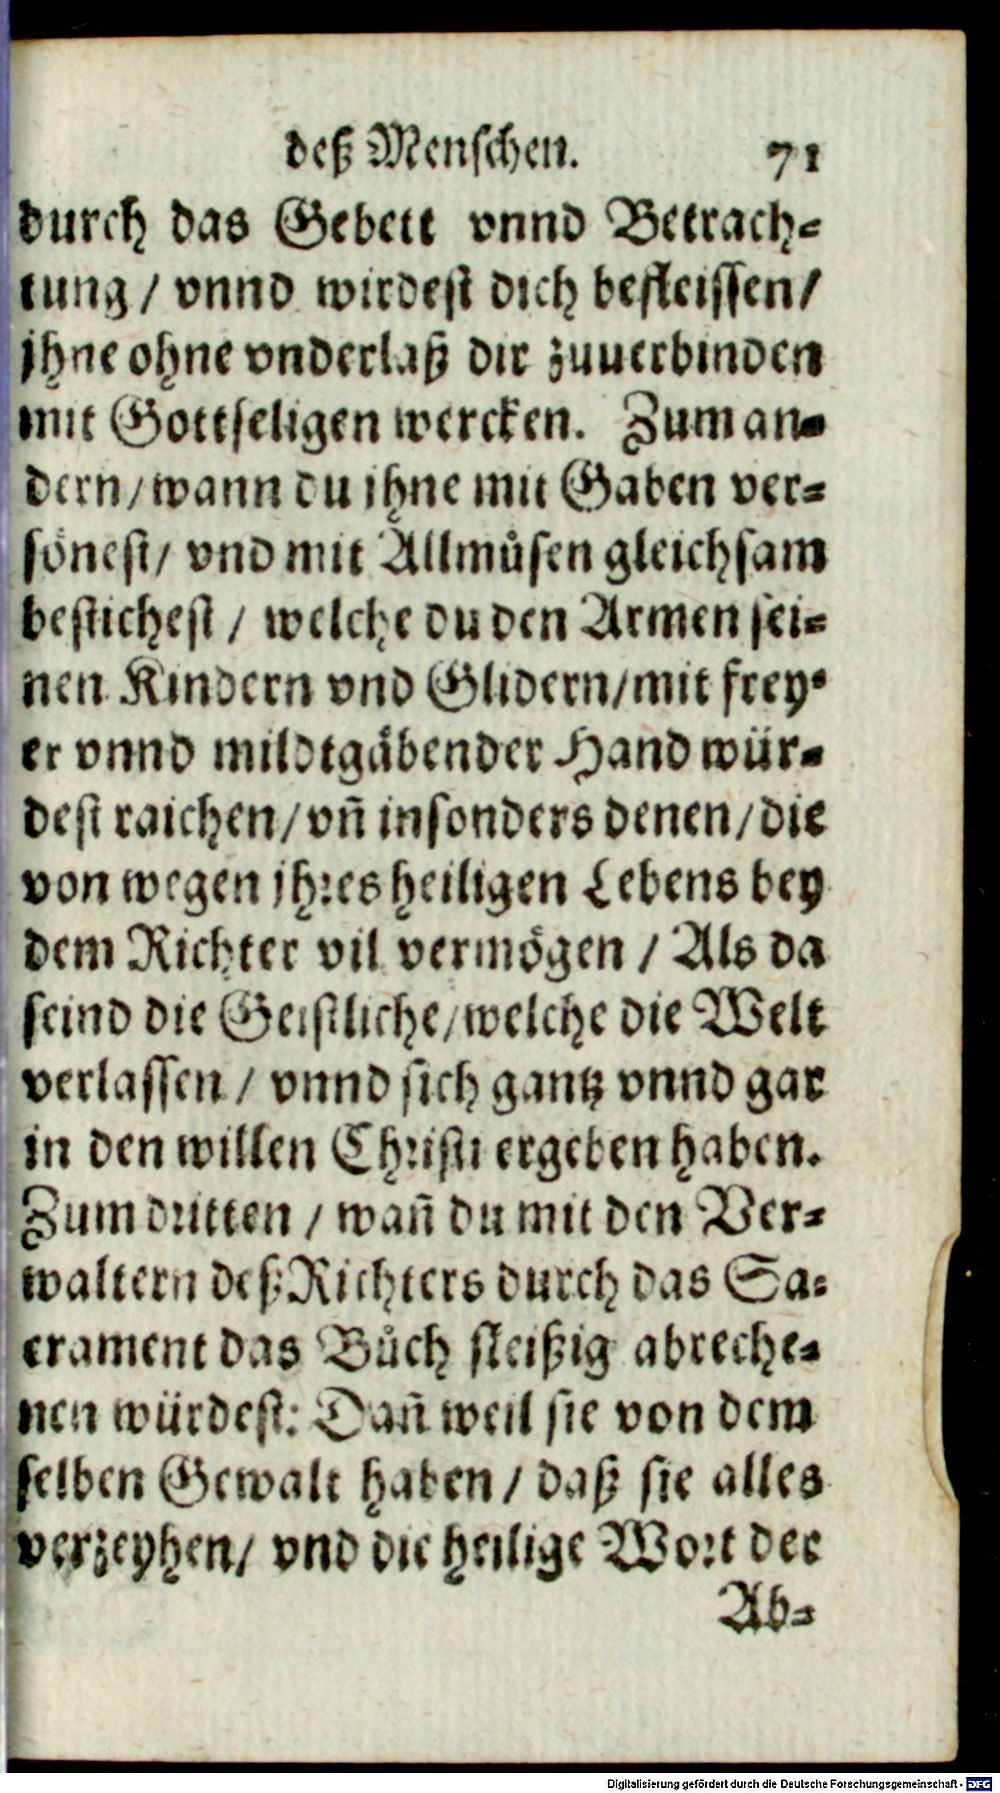 deß Menschen. 71
durch das Gebett vnnd Betrach-
tung / vnnd wirdest dich befleissen/
jhne ohne vnderlaß dir zuuerbinden
mit Gottseligen wercken. Zum an-
dern/wann du jhne mit Gaben ver-
sönest/ vnd mit Allmůsen gleichsam
bestichest / welche du den Armen sei-
nen Kindern vnd Glidern/mit frey-
er vnnd mildtgäbender Hand wür-
dest raichen/vñ insonders denen/die
von wegen jhres heiligen Lebens bey
dem Richter vil vermögen / Als da
seind die Geistliche/welche die Welt
verlassen / vnnd sich gantz vnnd gar
in den willen Christi ergeben haben.
Zum dritten / wañ du mit den Ver-
waltern deß Richters durch das Sa-
crament das Bůch fleißig abreche-
nen würdest: Dañ weil sie von dem
selben Gewalt haben / daß sie alles
verzeyhen/ vnd die heilige Wort der
Ab-
Digitalisierung gefördert durch die Deutsche Forschungsgemeinschaft - DFG